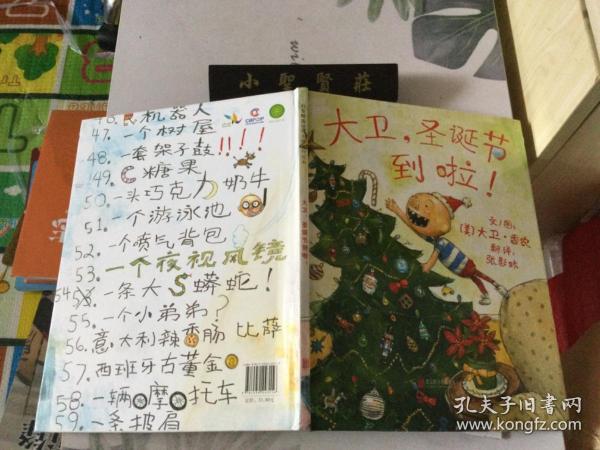 小聖賢莊
46.
机器人
47.一个树屋
48.一套架子鼓!!!!
49.C糖果
50.一头巧克力奶牛
51.一个游泳池
52.一个喷气背包
53.一个夜视风镜
54.一条大S蟒蛇!
55.一个小弟弟?
56.意大利辣香肠比萨
57.西班牙古董金
58.一辆摩托车
59.一条披肩
大卫,圣诞节到啦!
大卫,圣诞节
到啦!
文/图:
[美]大卫·香农
翻译:
孔夫子旧书网
www.kongfz.com